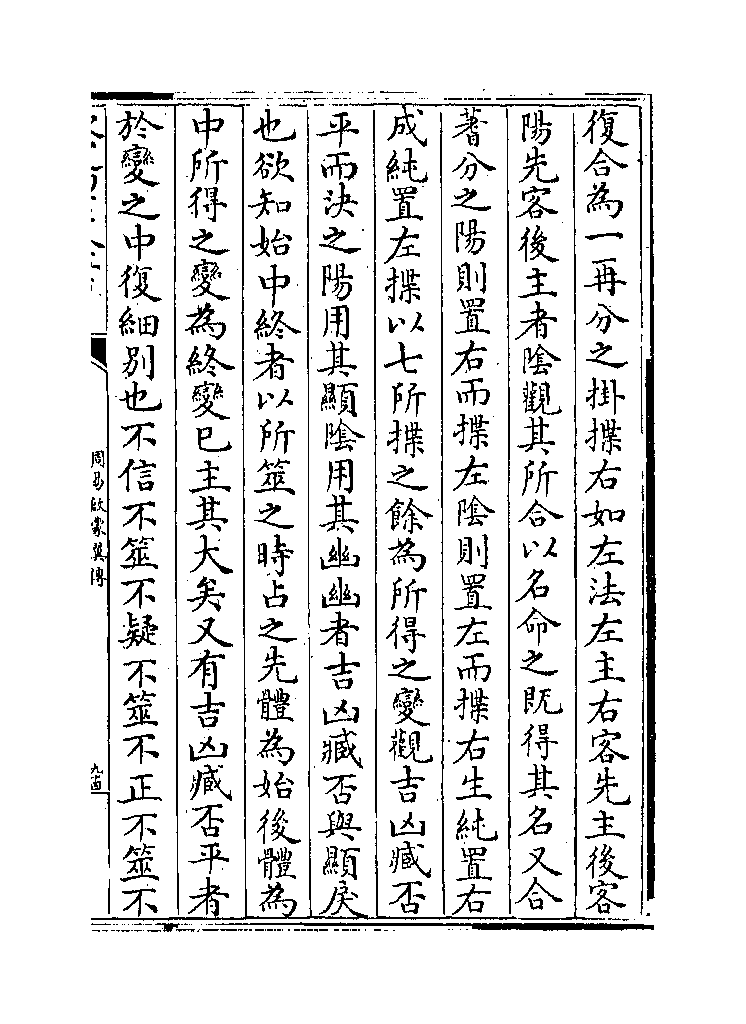 復合為一再分之掛揲右如左法左主右客先主後客
陽先客後主者陰觀其所合以名命之既得其名又合
蓍分之陽則置右而揲左陰則置左而揲右生純置右
成純置左揲以七所揲之餘為所得之變觀吉凶臧否
平而決之陽用其顯陰用其幽幽者吉凶臧否與顯戾
也欲知始中終者以所筮之時占之先體為始後體為
中所得之變為終變已主其大矣又有吉凶臧否平者
於變之中復細別也不信不筮不疑不筮不正不筮不
周易啟蒙翼傳